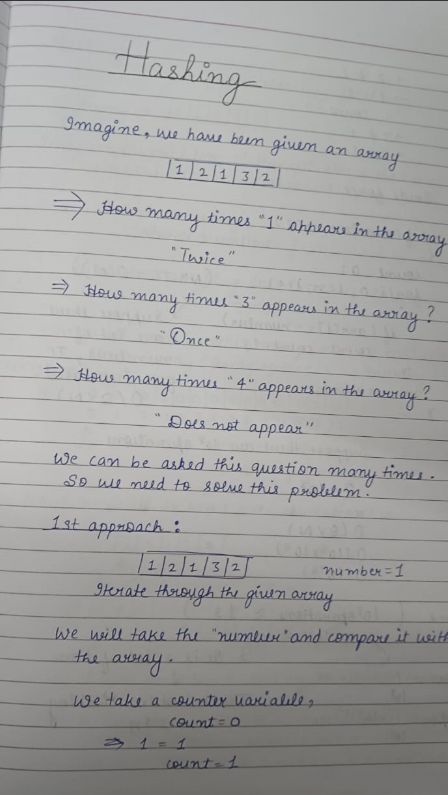 Hashing
Imagine, we have been given an array
|1|2|1|3|2|
⇒ How many times "1" appears in the array
"Twice"
⇒ How many times "3" appears in the array?
"Once"
⇒ How many times "4" appears in the array?
"Does not appear"
We can be asked this question many times.
So we need to solve this problem.
1st approach:
|1|2|1|3|2| number=1
Iterate through the given array
We will take the "number" and compare it with
the array.
We take a counter variable,
count=0
⇒ 1 = 1
count=1